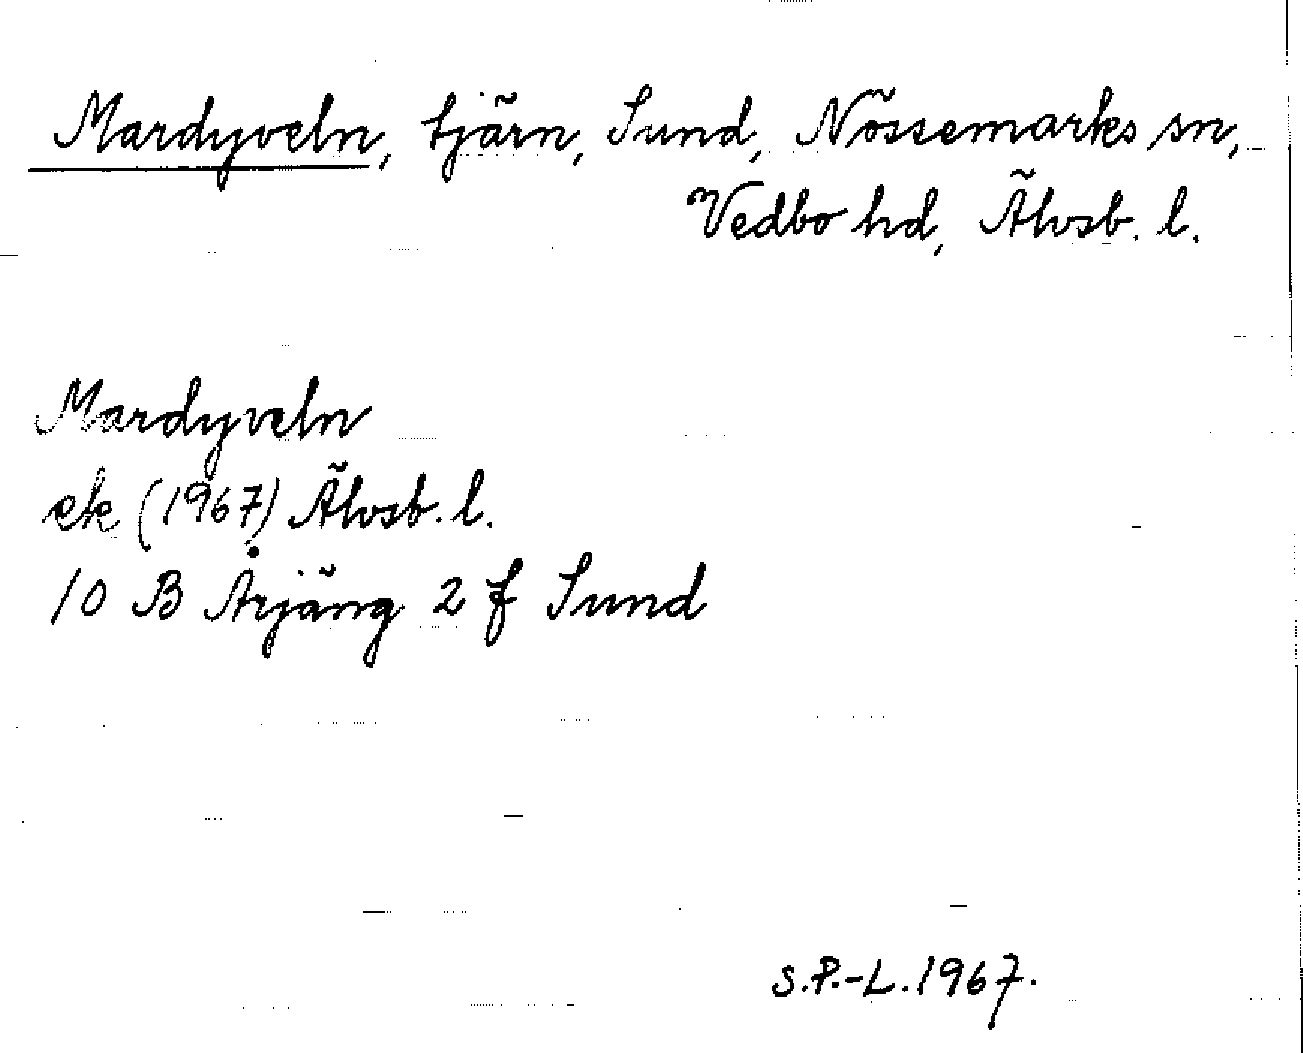 Mardyveln, tjärn, Sund, Nössemarks sn,
Vedbo hd, Älvsb. l.
Mardyveln
ek (1967) Älvsb. l.
10 B Årjäng 2 f Sund
S.P.-L. 1967.